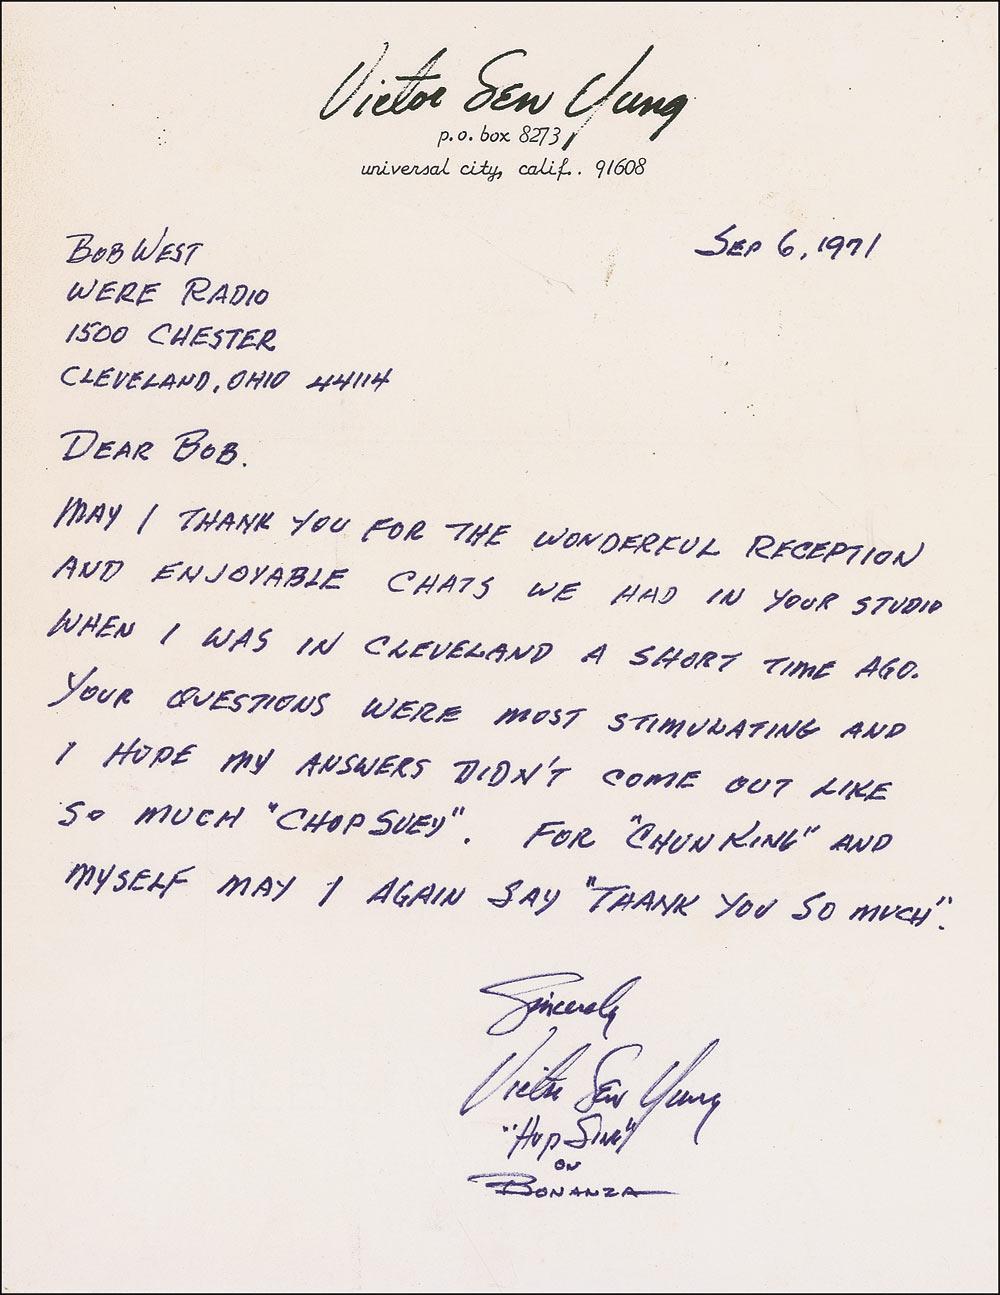 Victor Sen Yung
p.o. box 8273
universal city, calif.. 91608
Sep 6, 1971
BOB WEST
WERE RADIO
1500 CHESTER
CLEVELAND, OHIO 44114
DEAR BOB.
MAY I THANK YOU FOR THE WONDERFUL RECEPTION
AND ENJOYABLE CHATS WE HAD IN YOUR STUDIO
WHEN I WAS IN CLEVELAND A SHORT TIME AGO.
YOUR QUESTIONS WERE MOST STIMULATING AND
I HOPE MY ANSWERS DIDN'T COME OUT LIKE
SO MUCH "CHOP SUEY". FOR "CHUN KING" AND
MYSELF MAY I AGAIN SAY "THANK YOU SO MUCH".
Sincerely
Victor Sen Yung
"Hop Sing"
ON
BONANZA